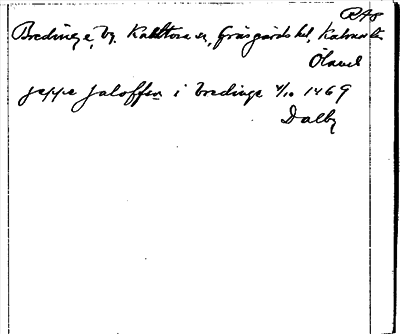 RAP
Bredinge, by. Kastlösa sn, Gräsgårds hd, Kalmar län
Öland
jeppe jaloffsn i bredinge 4/10 1469
Dalby